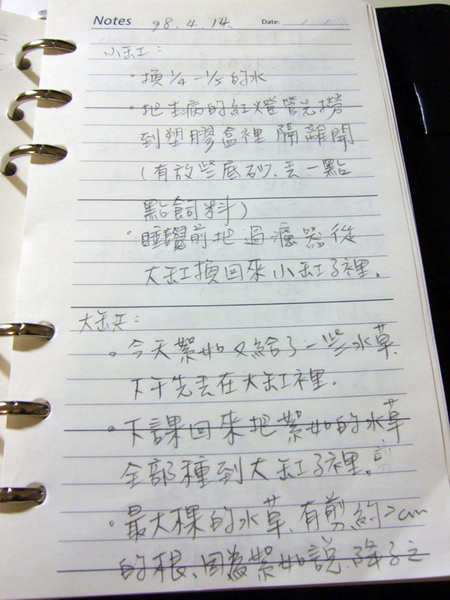 Notes 98.4.14. Date:
小缸:
·換1/4-1/5的水
·把生病的紅燈管先撈
到塑膠盒裡隔離開
(有放些底砂、丟一點
點飼料)
·睡覺前把過濾器從
大缸換回來小缸子裡。
大缸:
·今天絮如又給了一些水草
下午先丟在大缸裡。
·下課回來把絮如的水草
全部種到大缸子裡。
·最大棵的水草、有剪約2cm
的根、因為絮如說、除了